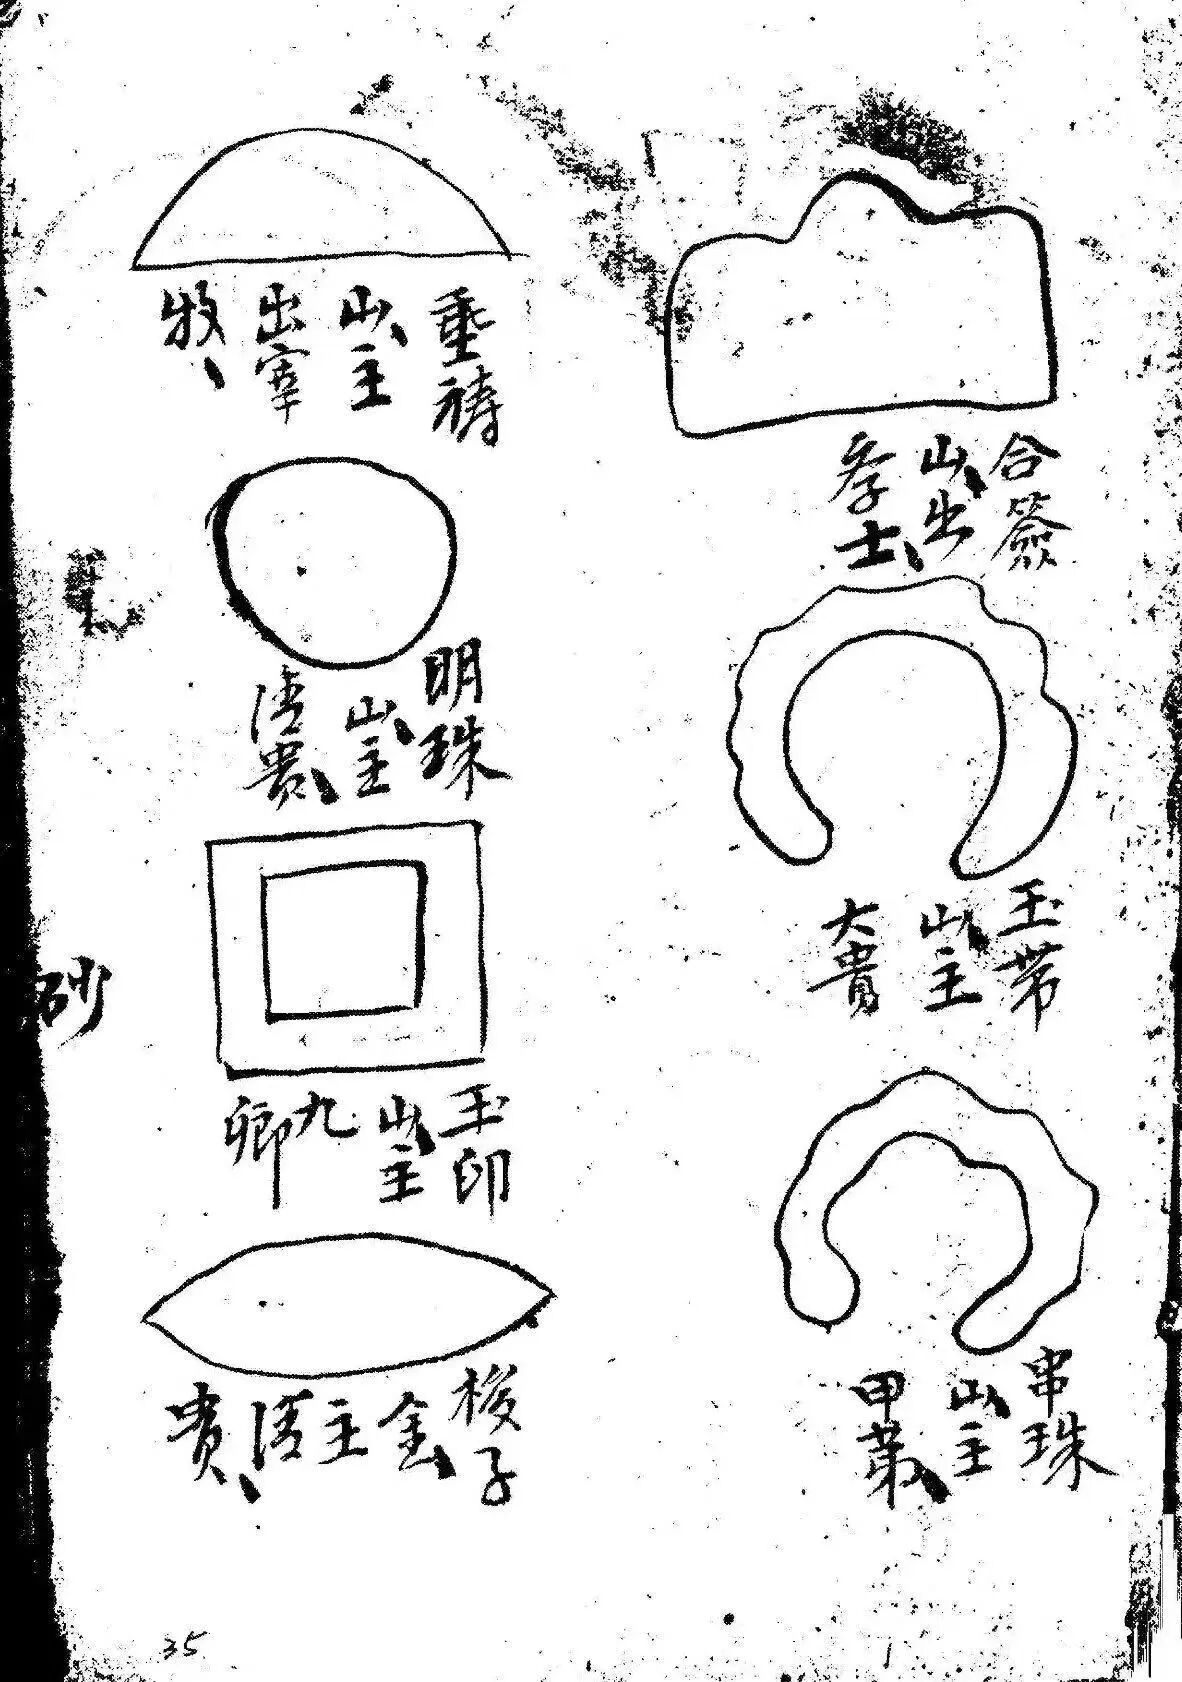 合簽
山出
斈士
玉帯
山主
大貴
串珠
山主
甲苐
垂禱
山主
出宰
牧
明珠
山主
清貴
玉印
山主
九
卿
梭子
金
主
清
貴
砂
35